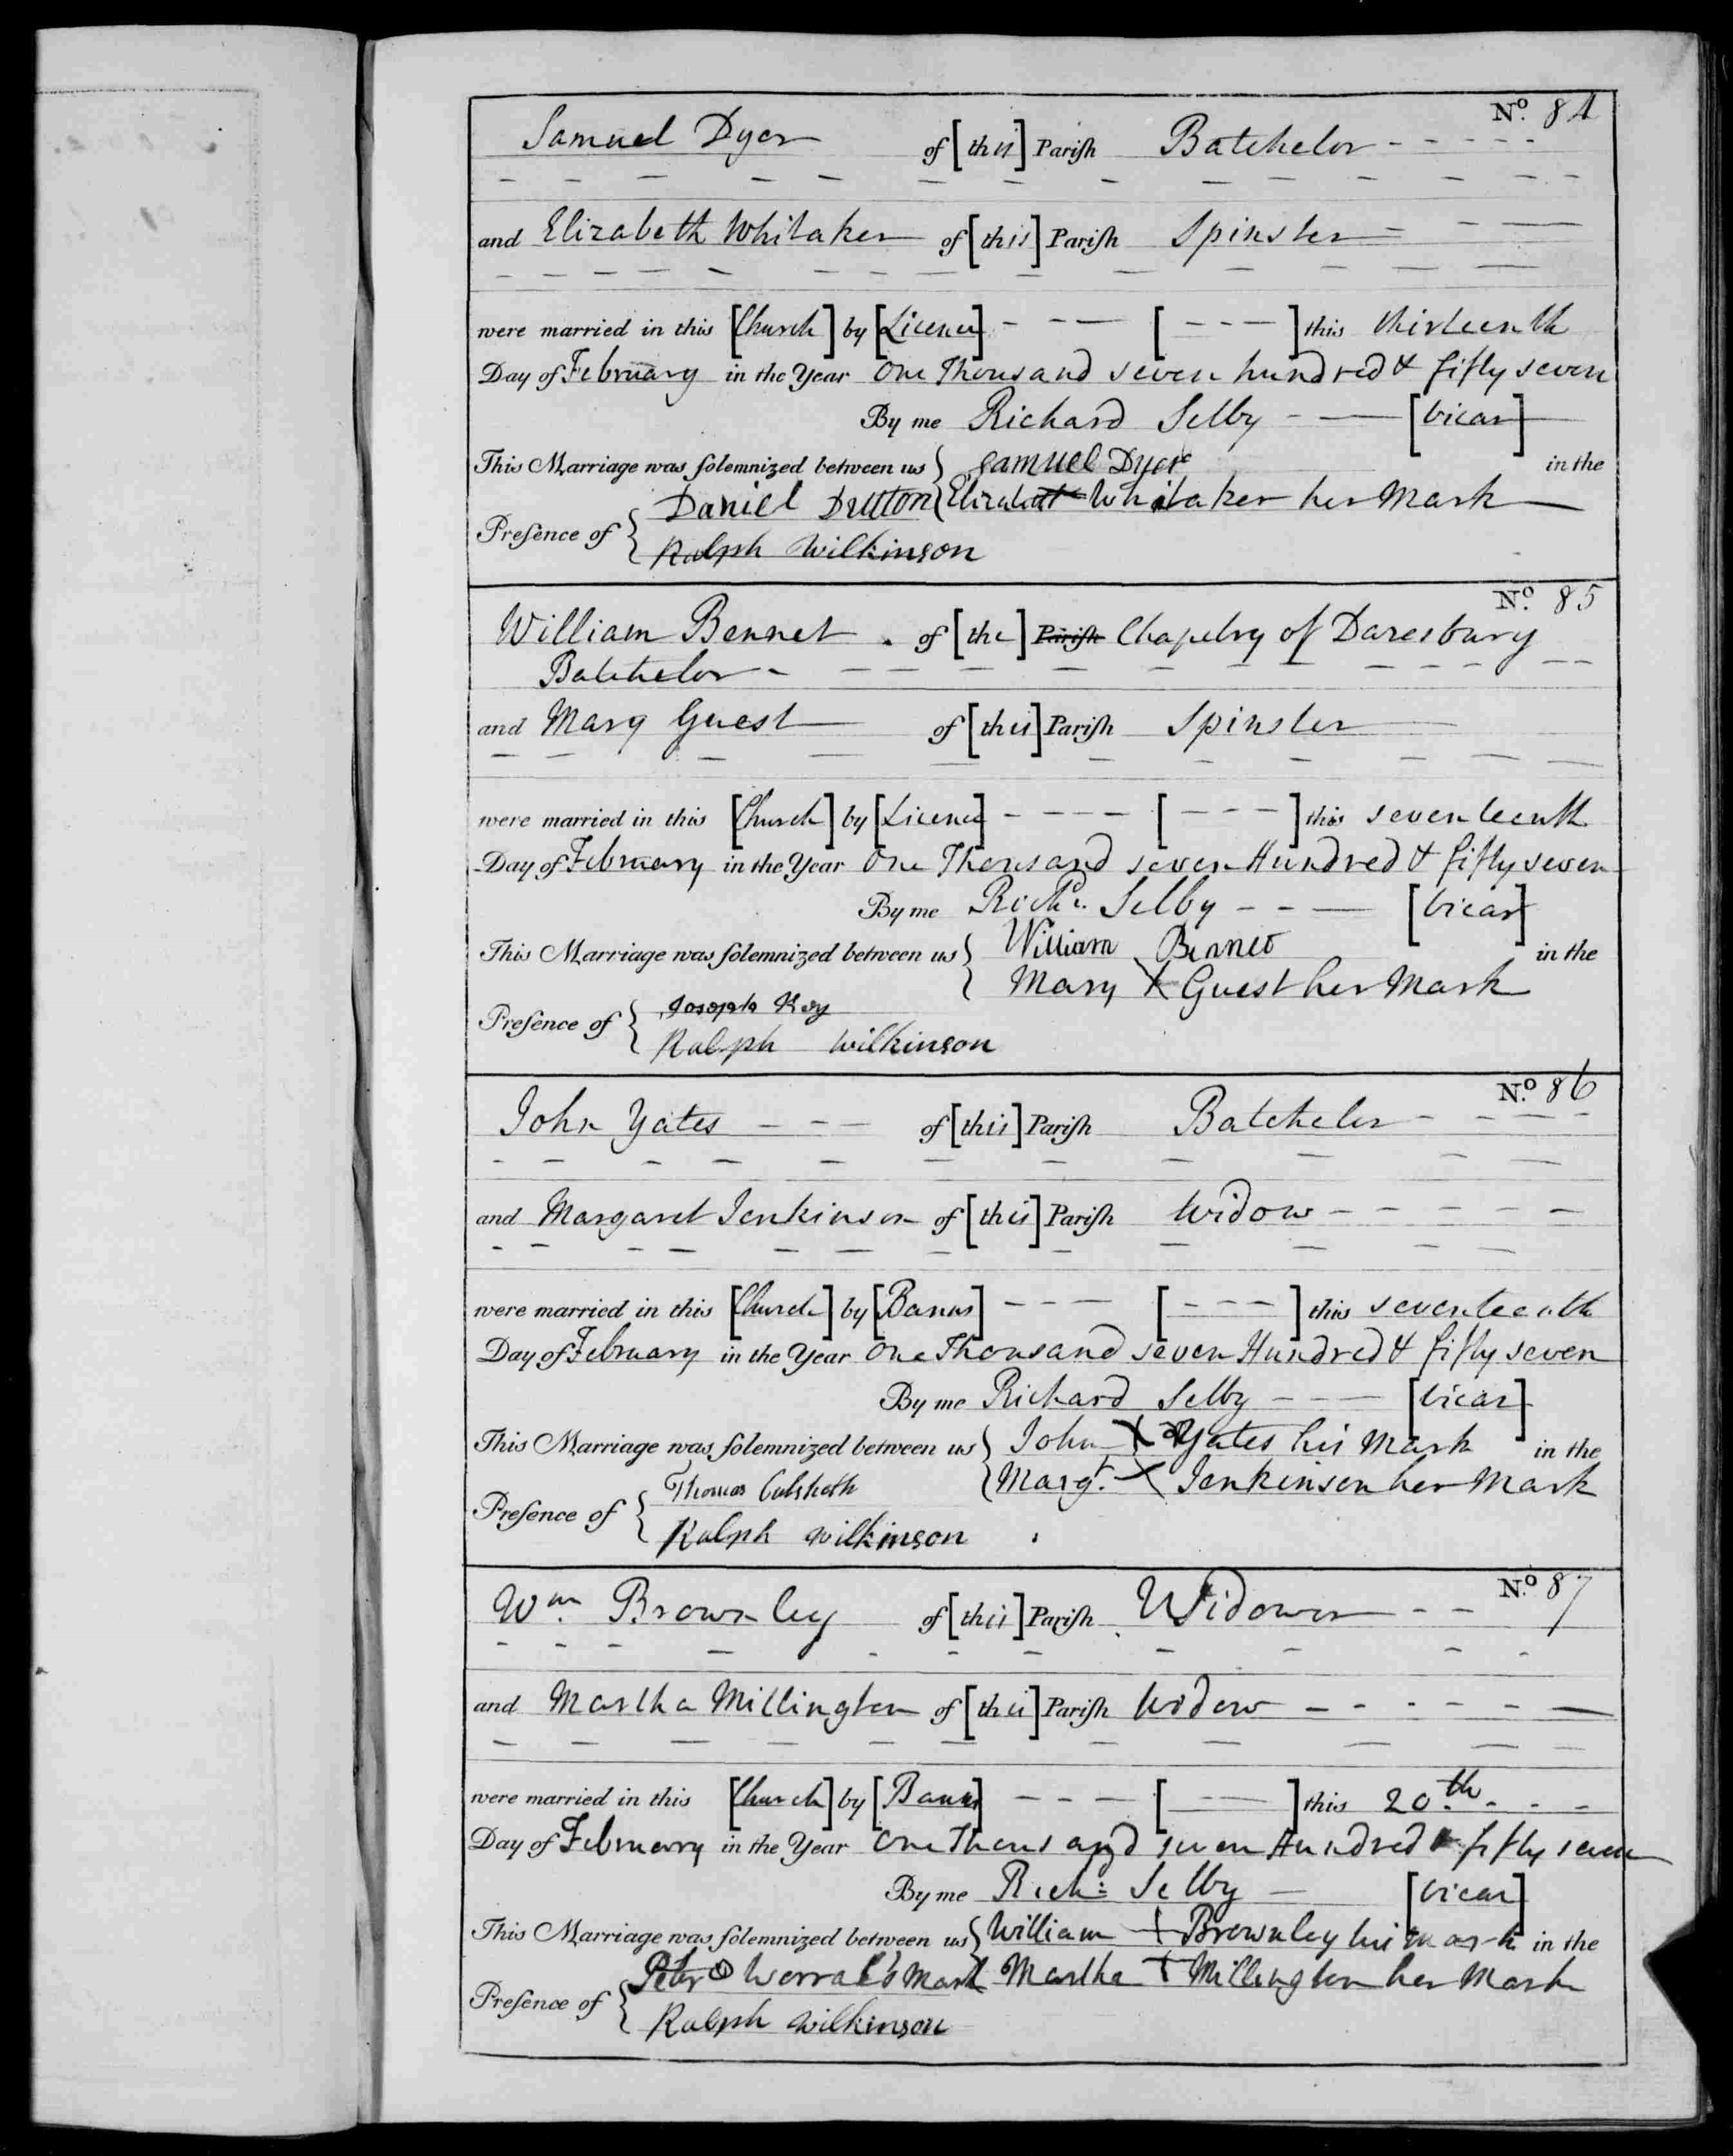 No. 84
Samuel Dyer of [this] Parish Batchelor
and Elizabeth Whitaker of [this] Parish Spinster
were married in this [Church] by [Licence] [ ] this thirteenth
Day of February in the Year One Thousand seven hundred & fifty seven
By me Richard Selby [Vicar]
This Marriage was solemnized between us } Samuel Dyer in the
Daniel { Elizabeth Whitaker her Mark
Presence of { Ralph Wilkinson
No. 85
William Bennet of [the] Parish Chapelry of Daresbury
Batchelor
and Mary Guest of [this] Parish Spinster
were married in this [Church] by [Licence] [ ] this seventeenth
Day of February in the Year One Thousand seven Hundred & fifty seven
By me Richd. Selby [Vicar]
This Marriage was solemnized between us } William Bennet in the
{ Mary X Guest her Mark
Presence of { Joseph Key
Ralph Wilkinson
No. 86
John Yates of [this] Parish Batchelor
and Margaret Jenkinson of [this] Parish Widow
were married in this [Church] by [Banns] [ ] this seventeenth
Day of February in the Year One Thousand seven Hundred & fifty seven
By me Richard Selby [Vicar]
This Marriage was solemnized between us } John X Yates his Mark in the
Thomas { Margt. X Jenkinson her Mark
Presence of { Ralph Wilkinson
No. 87
Wm. Brownley of [this] Parish Widower
and Martha Millington of [this] Parish Widow
were married in this [Church] by [Banns] [ ] this 20th.
Day of February in the Year One Thousand seven Hundred & fifty seven
By me Rich: Selby [Vicar]
This Marriage was solemnized between us { William + Brownley his mark in the
Peter O Worral's Mark Martha + Millington her Mark
Presence of { Ralph Wilkinson